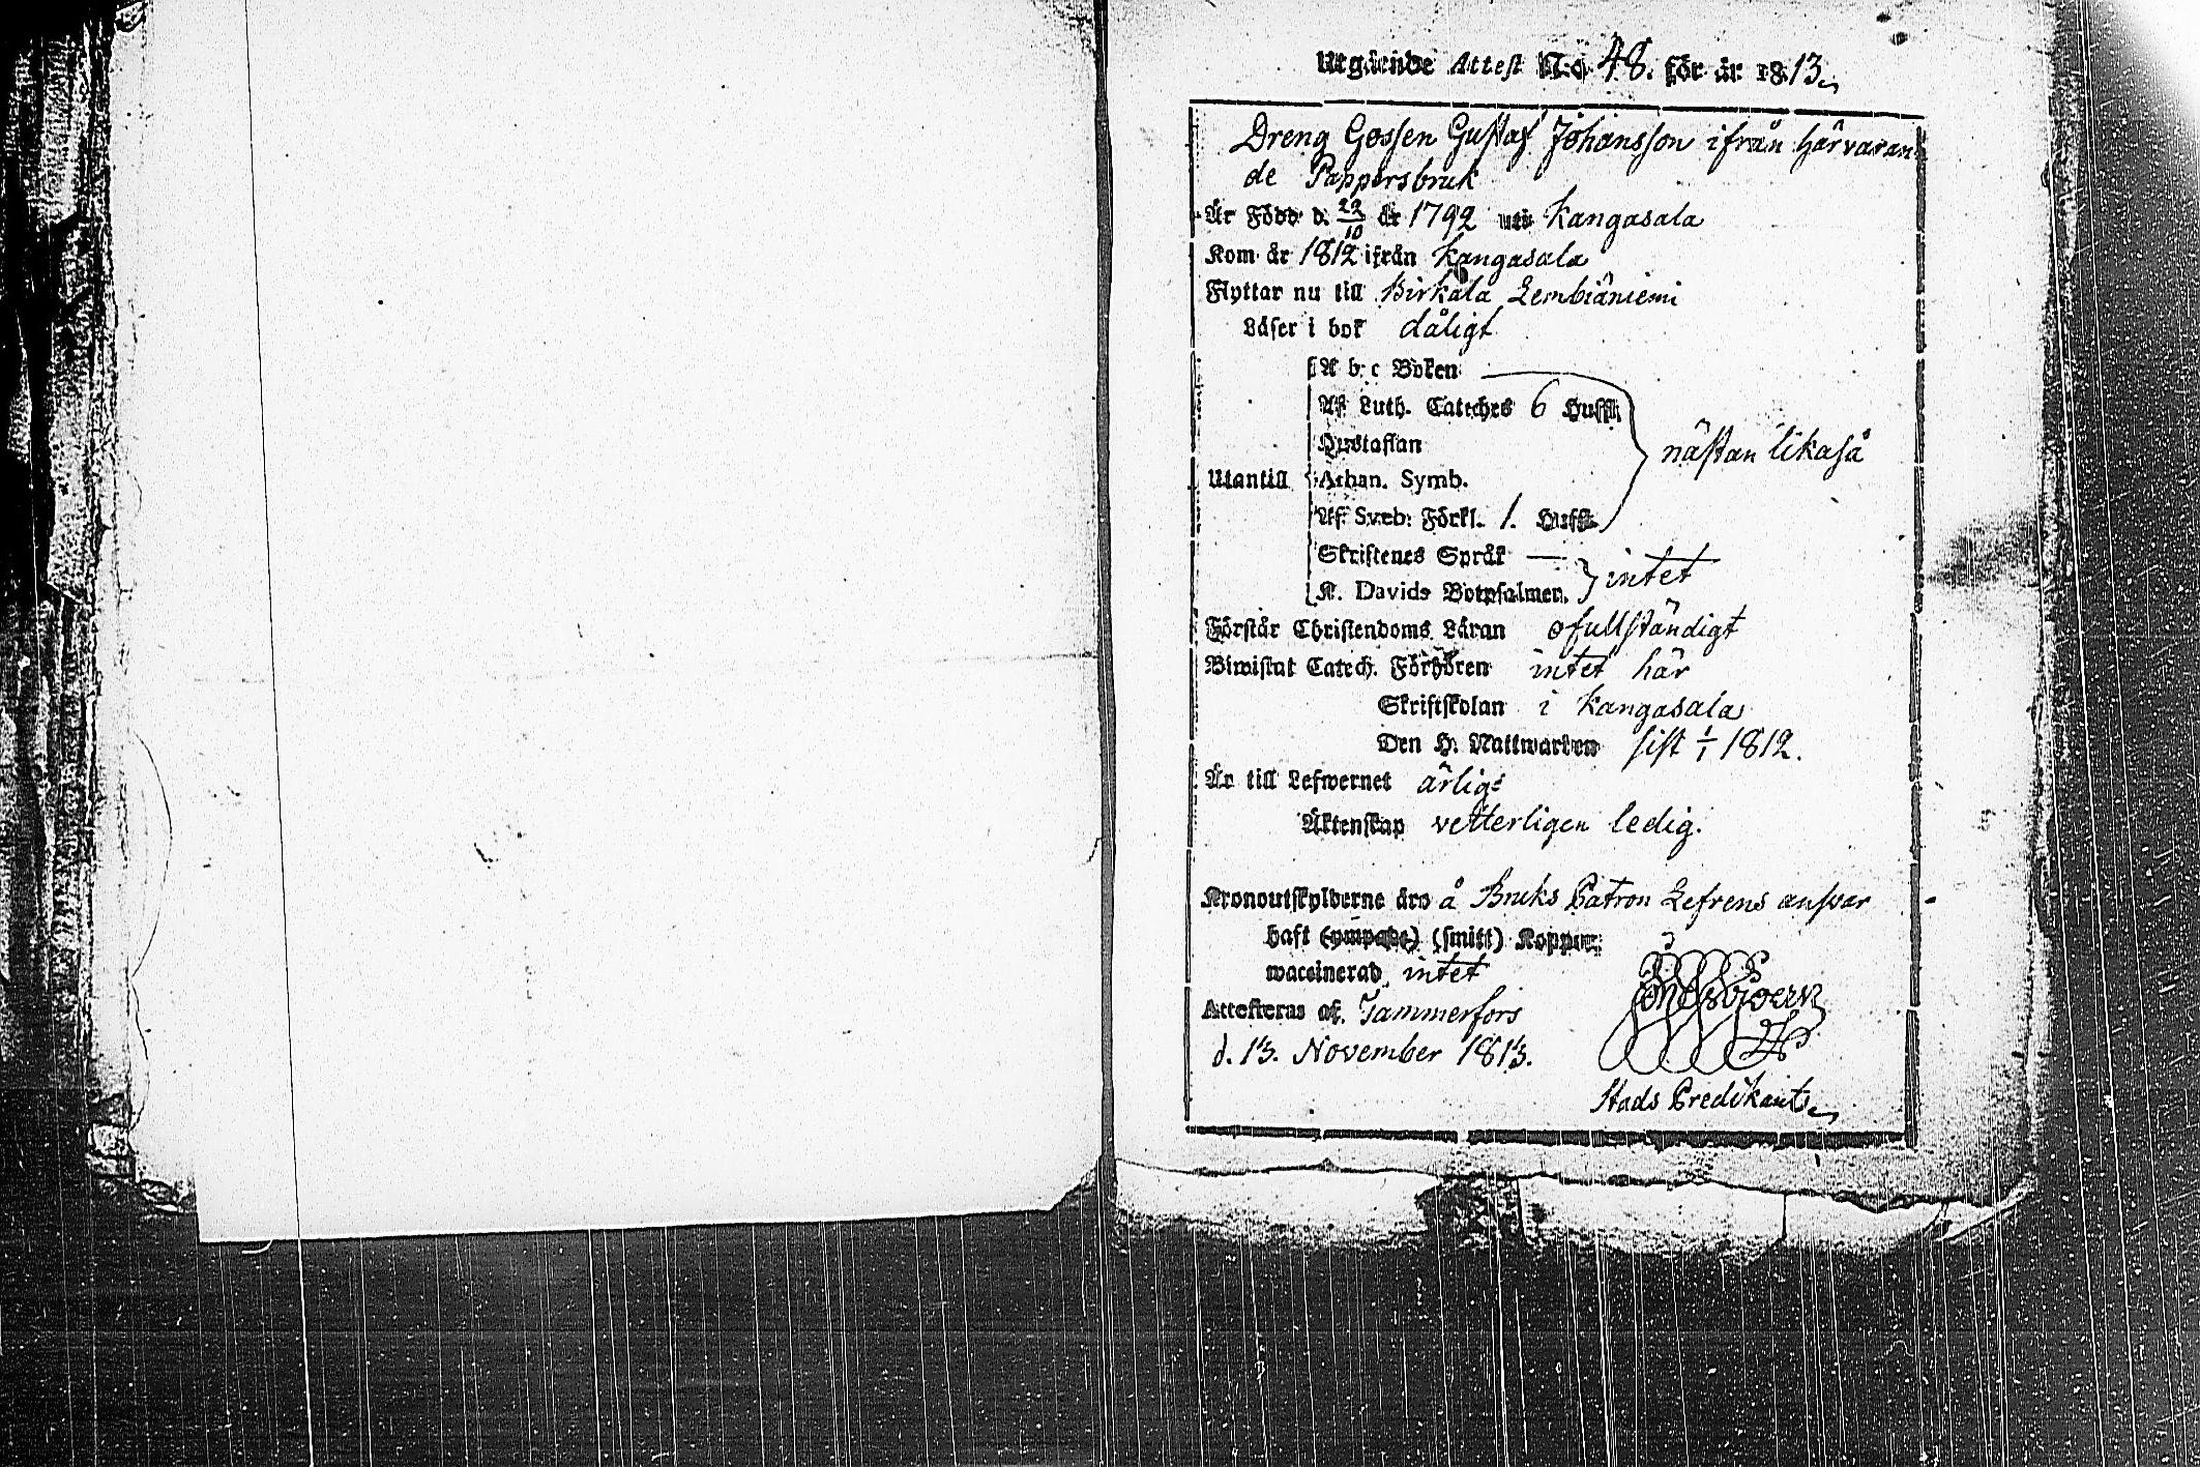 Utgående Attest N:o 48. för år 1813.
Dreng Gossen Gustaf Johansson ifrån härvaran
de Pappersbruk
Är Född d. 22/10 år 1792 uti Kangasala
Kom år 1812 ifrån Kangasala
Flyttar nu till Birkala Lembiäniemi
Läser i bok dåligt
A b c Boken
Af Luth. Cateches 6 Hufst.
Hustaflan
nästan likaså
Utantill Athan. Symb.
Af Sveb. Förkl. 1. Hufst.
Skriftenes Språk —
intet
K. Davids Botpsalmer.
Förstår Christendoms Läran ofullständigt
Biwistat Catech. Förhören intet här
Skriftskolan i Kangasala
Den H. Nattwarden sist 1/1 1812.
Är till Lefwernet ärlig
Äktenskap vetterligen ledig.
Kronoutskylderne äro å Bruks Patron Lefrens answar
haft (ympade) (smitt) Koppor
waccinerad intet
Attesteras af Tammerfors
d. 13. November 1813.
Stads Predikant